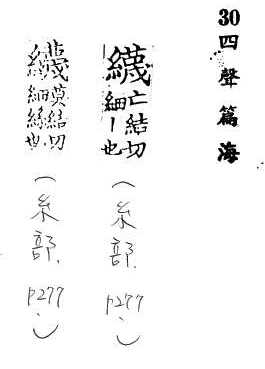 30四聲篇海
亡結切
細丨也
(糸部.p277、)
莫結切
細絲也
(糸部.p277、)